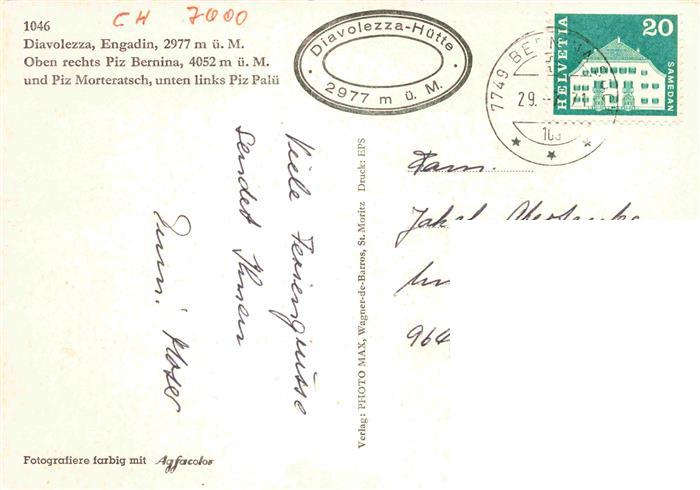 CH 7000
1046
Diavolezza, Engadin, 2977 m ü. M.
Oben rechts Piz Bernina, 4052 m ü. M.
und Piz Morteratsch, unten links Piz Palü
Diavolezza-Hütte
2977 m ü. M.
7749 BERNINA
29.
HELVETIA
20
SAMEDAN
Viele Feriengrüsse
sendet Ihnen
Verlag: PHOTO MAX, Wagner-de-Barros, St. Moritz Druck: EPS
Fam.
Jakob
964
Fotografiere farbig mit Agfacolor